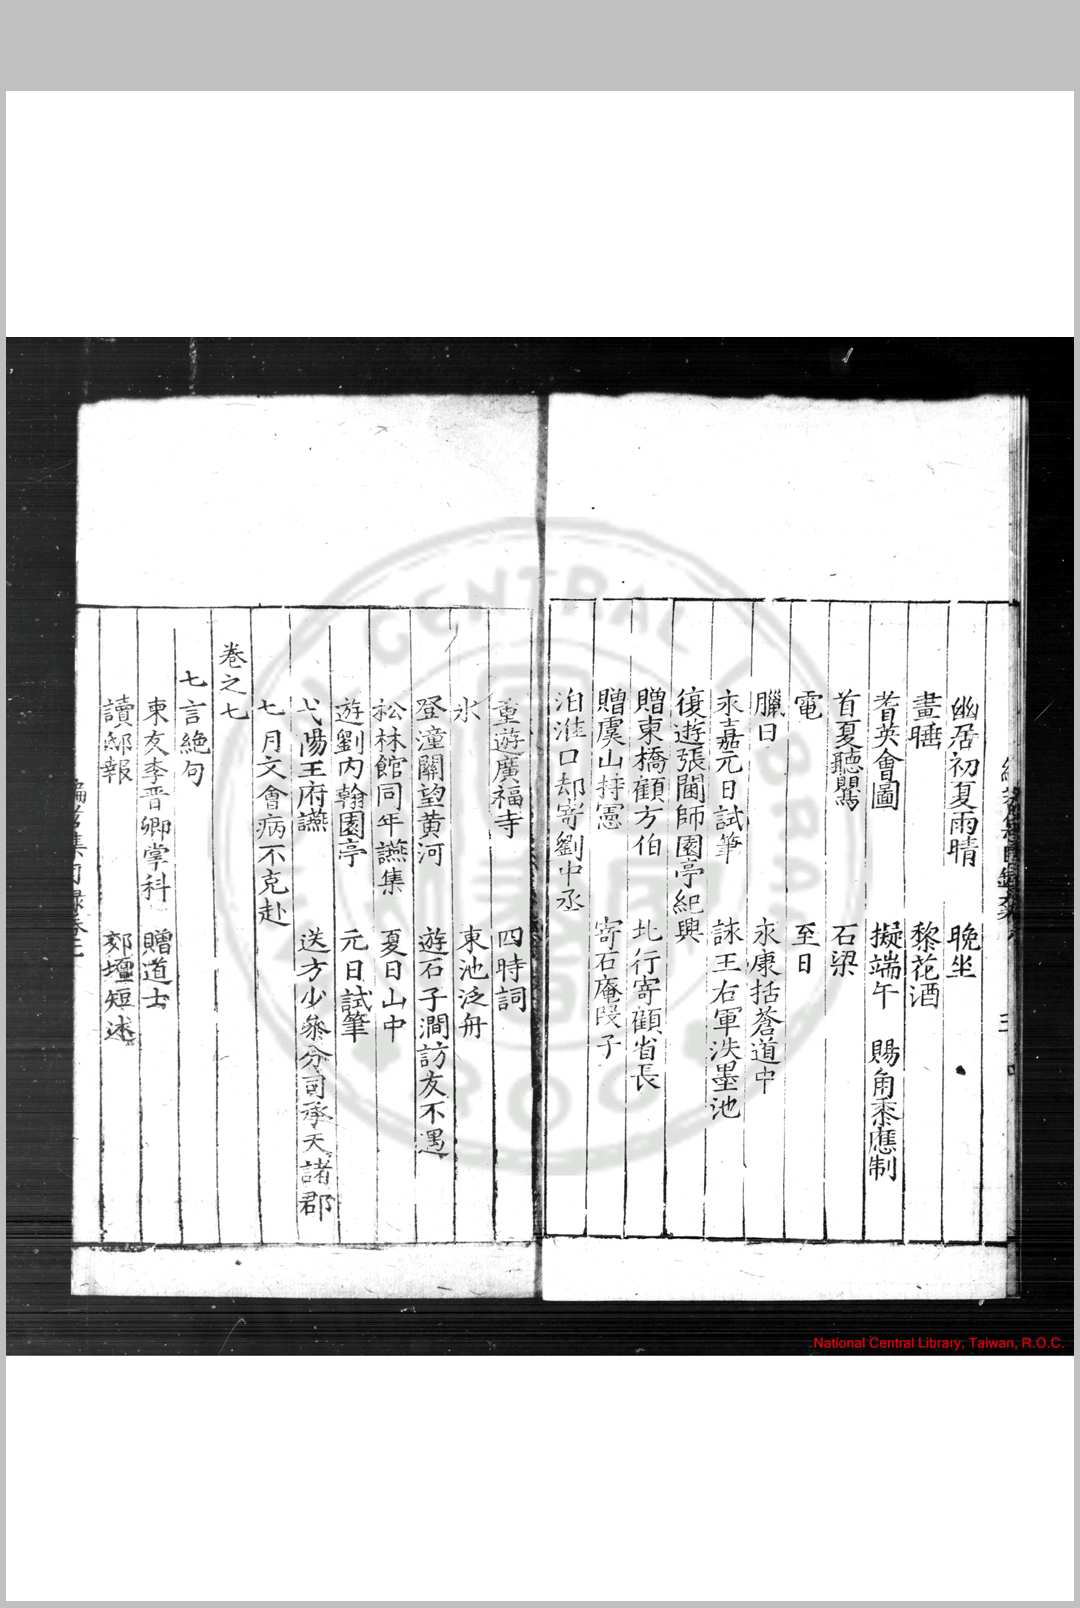 幽居初夏雨晴　晚坐
晝睡　黎花酒
耆英會圖　擬端午　賜角黍應制
首夏聽鶯　石梁
電　至日
臘日　永康括蒼道中
永嘉元日試筆　詠王右軍洗墨池
復遊張閫師園亭紀興
贈東橋顧方伯　北行寄顧省長
贈虞山持憲　寄石庵段子
泊淮口却寄劉中丞
重遊廣福寺　四時詞
氷　東池泛舟
登潼關望黃河　遊石子澗訪友不遇
松林館同年讌集　夏日山中
遊劉內翰園亭　元日試筆
弋陽王府讌　送方少參分司承天諸郡
七月文會病不克赴
卷之七
七言絕句
東友李晉卿掌科　贈道士
讀邸報　郊壇短述
National Central Library, Taiwan, R.O.C.
CENTRAL LIBRARY
ROC